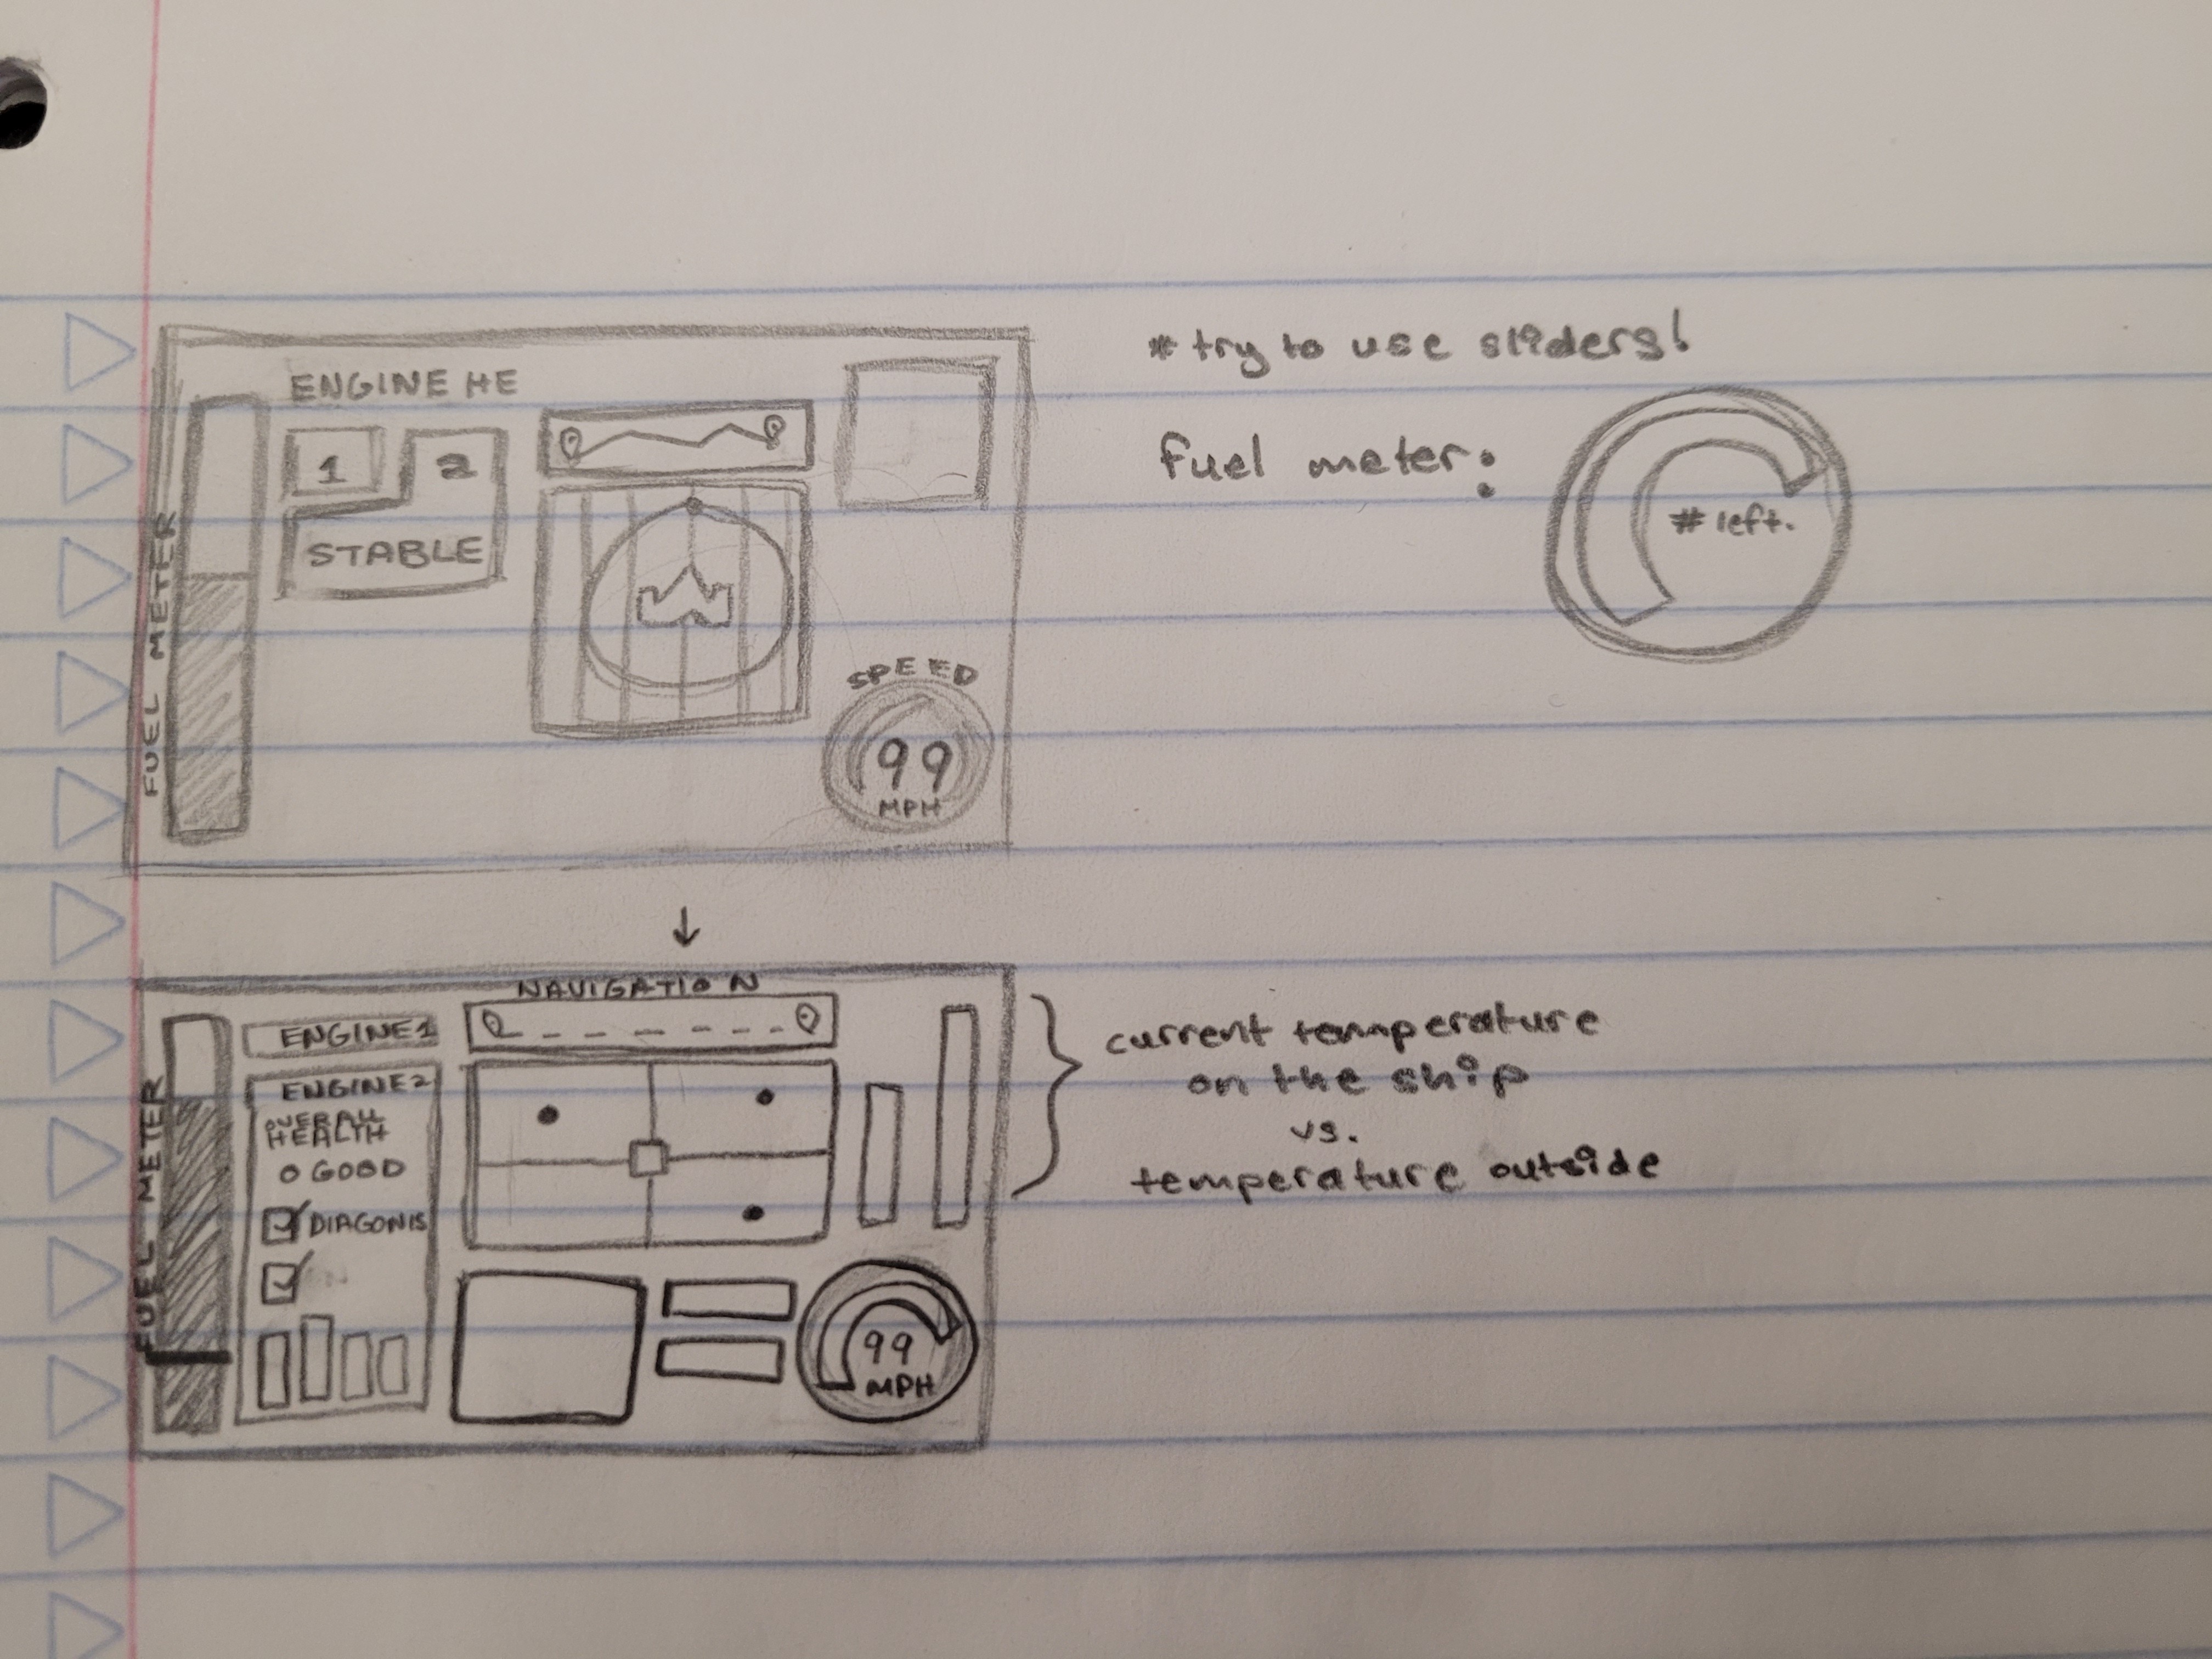 ENGINE HE
1
2
STABLE
FUEL METER
SPEED
99
MPH
* try to use sliders!
fuel meter:
# left.
↓
NAVIGATION
FUEL METER
ENGINE1
ENGINE2
OVERALL
HEALTH
O GOOD
DIAGONIS
99
MPH
current temperature
on the ship
vs.
temperature outside